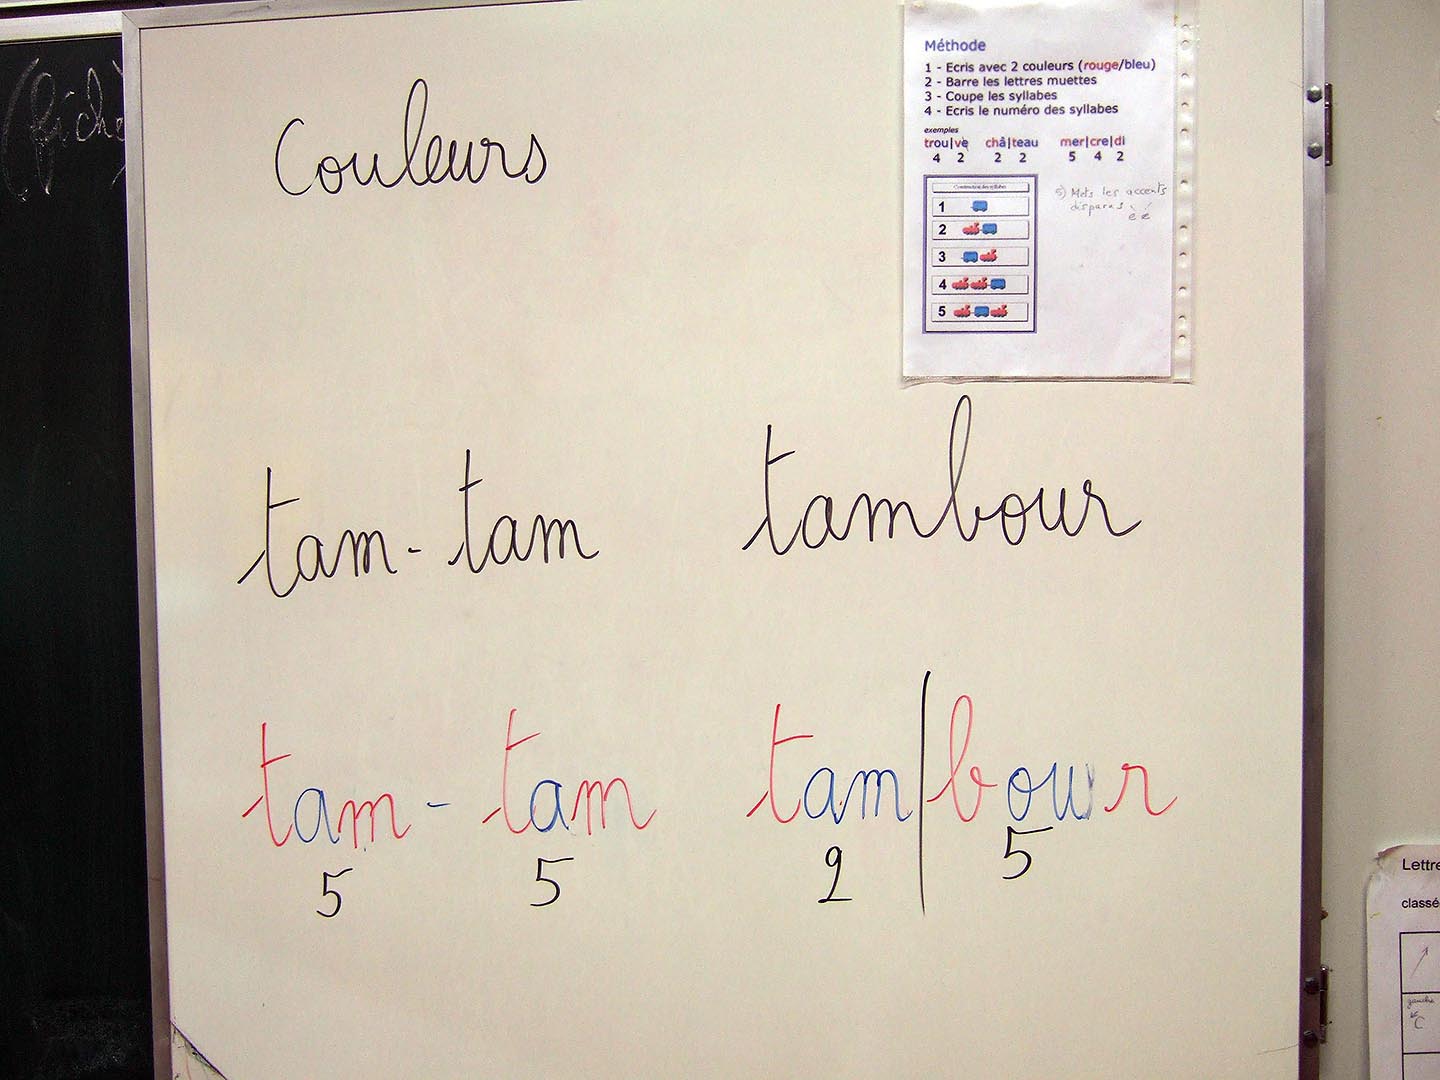 (fiche
Couleurs
Méthode
1 - Ecris avec 2 couleurs (rouge/bleu)
2 - Barre les lettres muettes
3 - Coupe les syllabes
4 - Ecris le numéro des syllabes
exemples
trou|ve châ|teau mer|cre|di
4 2 2 2 5 4 2
Construction des syllabes
1
2
3
4
5
5) Mets les accents
disparus è é
tam-tam tambour
tam-tam tam|bour
5 5 2 5
Lettre
classé
gauche
C